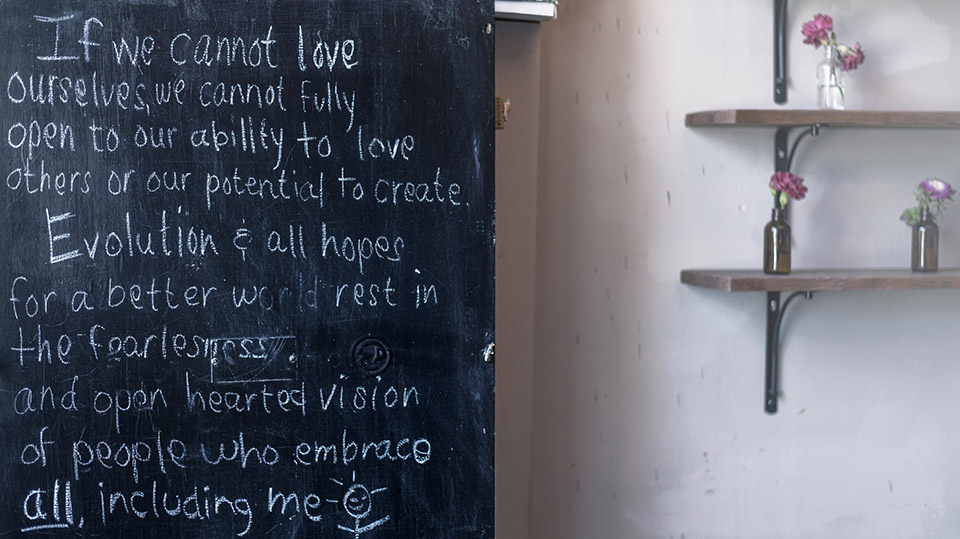 If we cannot love
ourselves, we cannot fully
open to our ability to love
others or our potential to create.
Evolution & all hopes
for a better world rest in
the fearlessness
and open hearted vision
of people who embrace
all, including me